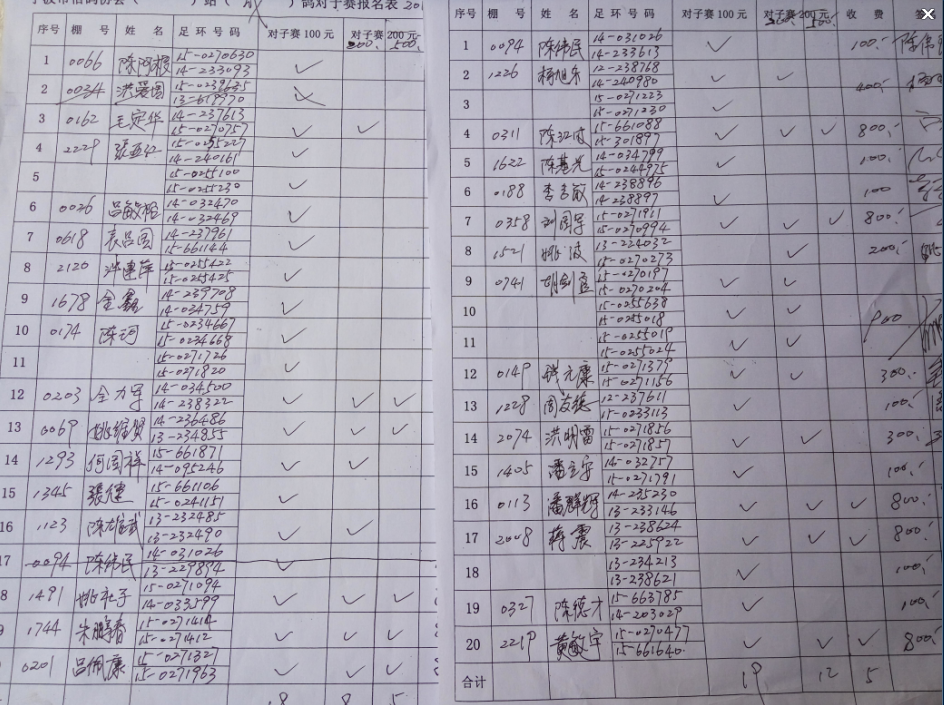 鸽对子赛报名表 20
序号 棚 号 姓 名 足 环 号 码 对子赛 100 元 对子赛 200 元
300. 500.
1 0066 陈阿根 15-0270630 ✓
14-233093
2 0034 洪爱国 ✓
3 0162 王定华 14-237613 ✓ ✓
15-0270757
4 2229 张亚红 15-0255227 ✓
14-240161
5 15-0255100 ✓
15-0255230
6 0026 吕敏 14-032470 ✓
14-032469
7 0618 袁昌国 14-237961 ✓
15-661144
8 2120 洪建萍 15-0255422 ✓
15-0255425
9 1678 金鑫 14-239708 ✓
14-034759
10 0174 陈珂 15-0234667 ✓
15-0234668
11 15-0271726 ✓
15-0271820
12 0203 全力军 14-034500 ✓ ✓ ✓
14-238322
13 0069 姚 14-236486 ✓ ✓ ✓
13-234855
14 1293 何国祥 15-661871 ✓ ✓
14-095246
15 1345 张健 15-661106 ✓
15-0241151
16 1123 陈雄武 13-232485 ✓ ✓
13-232490
17 0094 陈伟民 14-031026 ✓
13-229894
8 1491 姚 15-0271094 ✓ ✓ ✓
14-033599
1744 朱鹏春 15-0271414 ✓ ✓ ✓
15-0271412
0201 吕佩康 15-0271327 ✓ ✓ ✓
15-0271963
18 8 5
序号 棚 号 姓 名 足 环 号 码 对子赛 100 元 对子赛 200 元 收 费
300. 500.
1 0094 陈伟民 14-031026 ✓ 100.
14-233613
2 1226 杨旭东 12-238768 ✓ ✓ 400.
14-240980
3 15-0271223 ✓
15-0271230
4 0311 陈江 15-661088 ✓ ✓ ✓ 800.
15-301897
5 1622 陈基光 14-034799 ✓ 100.
15-0244975
6 0188 李吉敏 14-238896 ✓ 100
14-238897
7 0358 刘国军 15-0271911 ✓ ✓ ✓ 800.
15-0270994
8 1521 姚波 13-224032 ✓ 200.
15-0270273
9 0741 胡剑 15-0270197 ✓ ✓
15-0270204
10 15-0255638 ✓ ✓ 900
15-0255018
11 15-0255019 ✓ ✓
15-0255024
12 0149 钱元康 15-0271379 ✓ ✓ 300.
15-0271156
13 1228 周友德 12-237611 ✓ 100.
15-0233113
14 2074 洪明雷 15-0271856 ✓ ✓ 300.
15-0271857
15 1405 潘 14-032757 ✓ 100.
15-0271791
16 0113 潘群辉 14-235230 ✓ ✓ ✓ 800.
13-233146
17 2008 蒋震 13-238624 ✓ ✓ ✓ 800.
13-225922
18 13-234213 ✓ 100.
13-238621
19 0327 陈德才 15-663785 ✓ 100.
14-203029
20 2219 黄敏宇 15-0270477 ✓ ✓ ✓ 800.
15-661640
合计 19 12 5